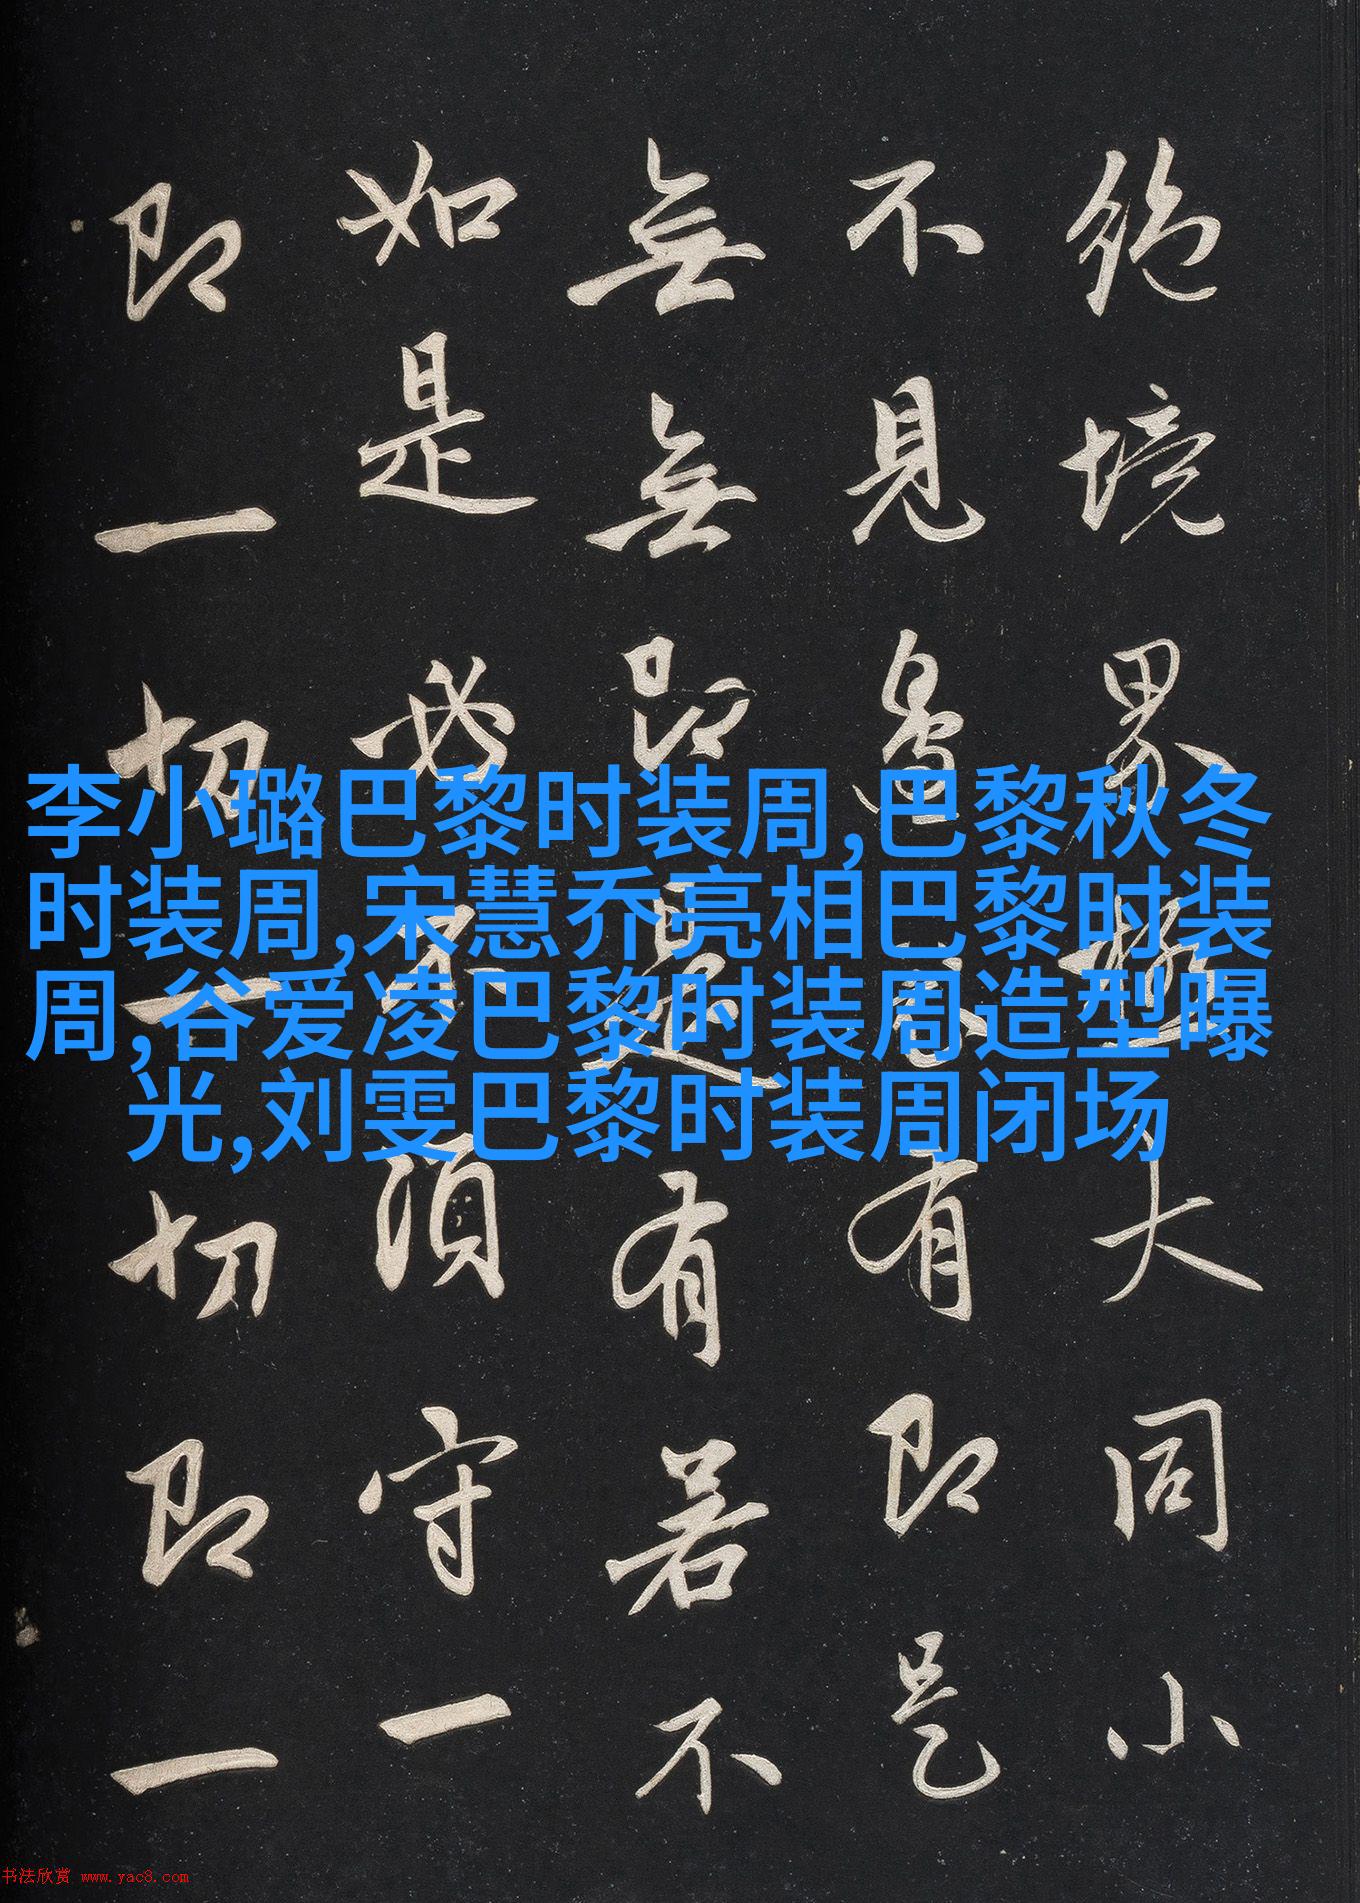 絶境界極大同小
不見邊表有即是
無無即是有若不
如是必不須守一
即一切一切即一
李小璐巴黎时装周,巴黎秋冬
时装周,宋慧乔亮相巴黎时装
周,谷爱凌巴黎时装周造型曝
光,刘雯巴黎时装周闭场
书法欣赏 www.yac8.com